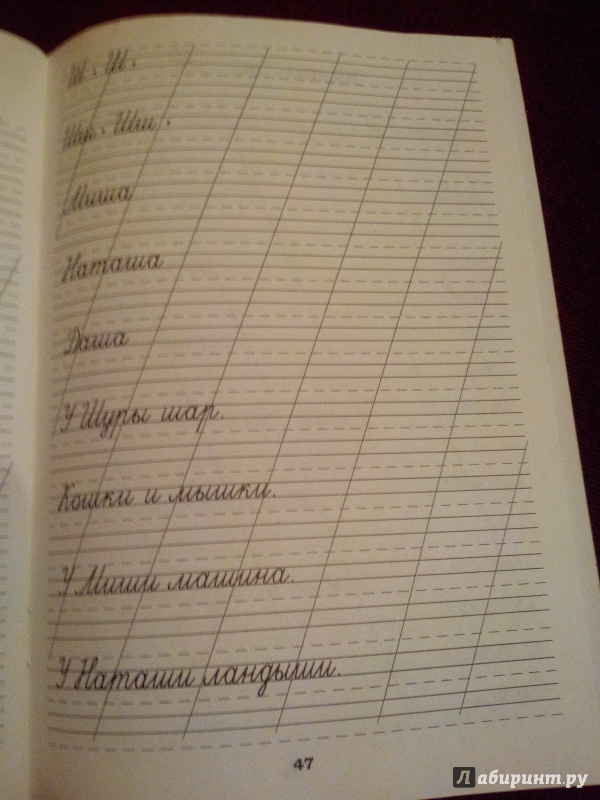 Ш. Ш.
Шк. Шш.
Миша
Наташа
Даша
У Шуры шар.
Кошки и мышки.
У Миши машина.
У Наташи ландыши.
47
Лабиринт.ру